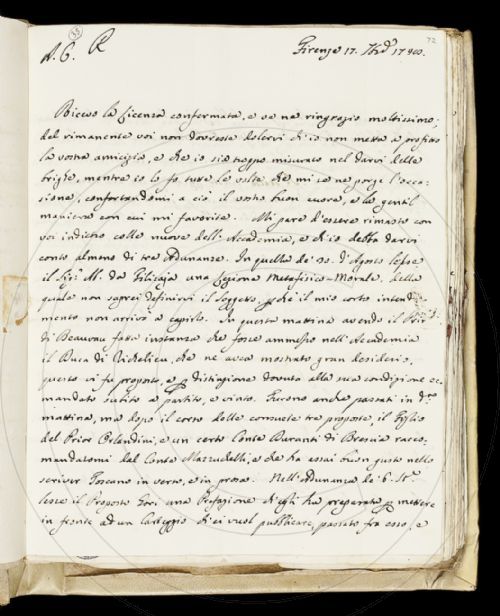 72
A. C. R
Firenze 17. 7bre 17
Ricevo la licenza confermata, e ve ne ringrazio moltissimo;
del rimanente voi non dovreste dolervi ch'io non metta a profitto
la vostra amicizia, e che io sia troppo misurato nel darvi delle
brighe, mentre io lo fo tutte le volte che mi se ne porge l'occa-
sione, confortandomi a ciò il vostro buon cuore, e la gentil
maniera con cui mi favorite. Mi pare d'essere rimasto con
voi indietro colle nuove dell'Accademia, e ch'io debba darvi
conto almeno di tre Adunanze. In quella de' 20. d'Agosto lesse
il Sigr. M. da Filicaja una Lezione Metafisico-Morale, della
quale non saprei definirvi il soggetto, pchè il mio corto intendi-
mento non arrivò a capirlo. In questa mattina avendo il
di Beauvau fatta instanza che fosse ammesso nell'Accademia
il Duca di Richelieu, che ne avea mostrato gran desiderio,
questo vi fu proposto, e p distinzione dovuta alla sua condizione
mandato subito a partito, e vinto. Furono anche passati in da
mattina, ma dopo il corso delle consuete tre proposte, il Figlio
del Prior Orlandini, e un certo Conte Duranti di Brescia racco-
mandatomi dal Conte Mazzuchelli, e che ha assai buon gusto nello
scriver Toscano in verso, e in prosa. Nell'Adunanza de' 6. St.e
lesse il Proposto Gori una Prefazione ch'egli ha preparato p mettere
in fronte ad un Carteggio ch'ei vuol pubblicare, passato fra esso, e